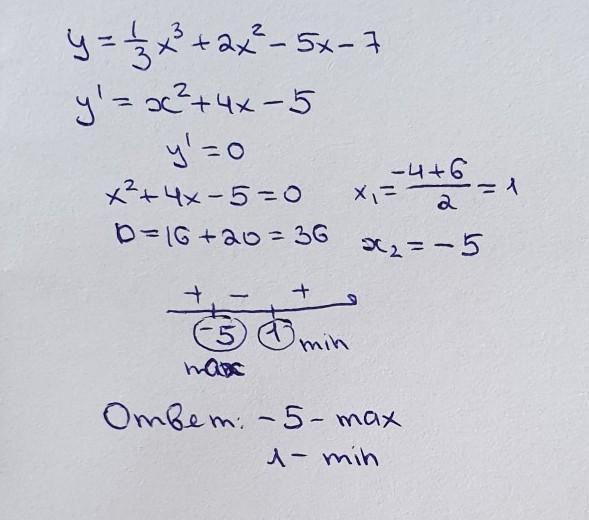 y = 1/3 x³ + 2x² - 5x - 7
y' = x² + 4x - 5
y' = 0
x² + 4x - 5 = 0
x₁ = (-4 + 6)/2 = 1
D = 16 + 20 = 36
x₂ = -5
+ - +
-5 1 min
max
Ответ: -5 - max
1 - min